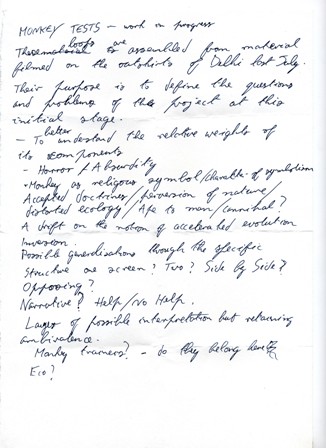 MONKEY TESTS – work in progress
These loops are assembled from material
filmed on the outskirts of Delhi last July.
Their purpose is to define the questions
and problems of this project at this
initial stage.
– To better understand the relative weights of
its components
- Horror / Absurdity
- Monkey as religious symbol / character of symbolism
Accepted doctrines / perversion of nature /
distorted ecology / Ape to man / cannibal?
A drift on the notion of accelerated evolution
Inversion.
Possible generalisations through the specific
Structure one screen? Two? Side by Side?
Opposing?
Narrative? Help / No Help.
Layers of possible interpretation but retaining
ambivalence.
Monkey trainers? – do they belong
Eco?